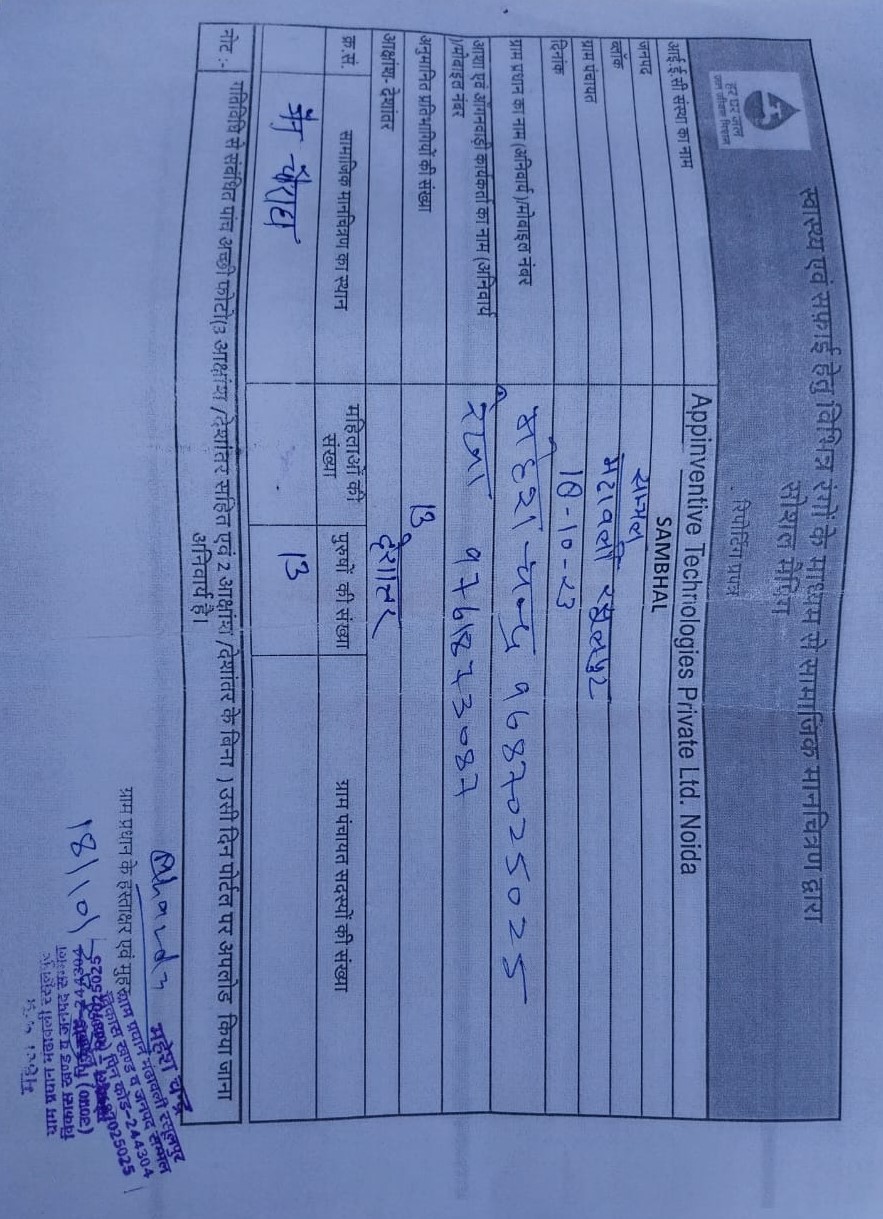 हर घर जल
जल जीवन मिशन
स्वास्थ्य एवं सफ़ाई हेतु विभिन्न रंगों के माध्यम से सामाजिक मानचित्रण द्वारा
सोशल मैपिंग
रिपोर्टिंग प्रपत्र
आई.ई.सी संस्था का नाम Appinventive Technologies Private Ltd. Noida
जनपद SAMBHAL
ब्लॉक सम्भल
ग्राम पंचायत मढावली रसूलपुर
दिनांक 18-10-23
ग्राम प्रधान का नाम (अनिवार्य )/मोबाइल नंबर महेश चन्द्र 9687025025
आशा एवं आँगनवाड़ी कार्यकर्ता का नाम (अनिवार्य
)/मोबाइल नंबर
अनुमानित प्रतिभागियों की संख्या 13
आक्षांश- देशांतर देशान्तर
क्र.सं. सामाजिक मानचित्रण का स्थान महिलाओं की संख्या पुरुषों की संख्या ग्राम पंचायत सदस्यों की संख्या
13
नोट :- गतिविधि से संबंधित पांच अच्छी फोटो(3 आक्षांश /देशांतर सहित एवं 2 आक्षांश /देशांतर के बिना ) उसी दिन पोर्टल पर अपलोड किया जाना
अनिवार्य है।
ग्राम प्रधान के हस्ताक्षर एवं मुहर
महेश चन्द्र
ग्राम प्रधान मढावली रसूलपुर
विकास खण्ड व जनपद सम्भल
पिन कोड-244304